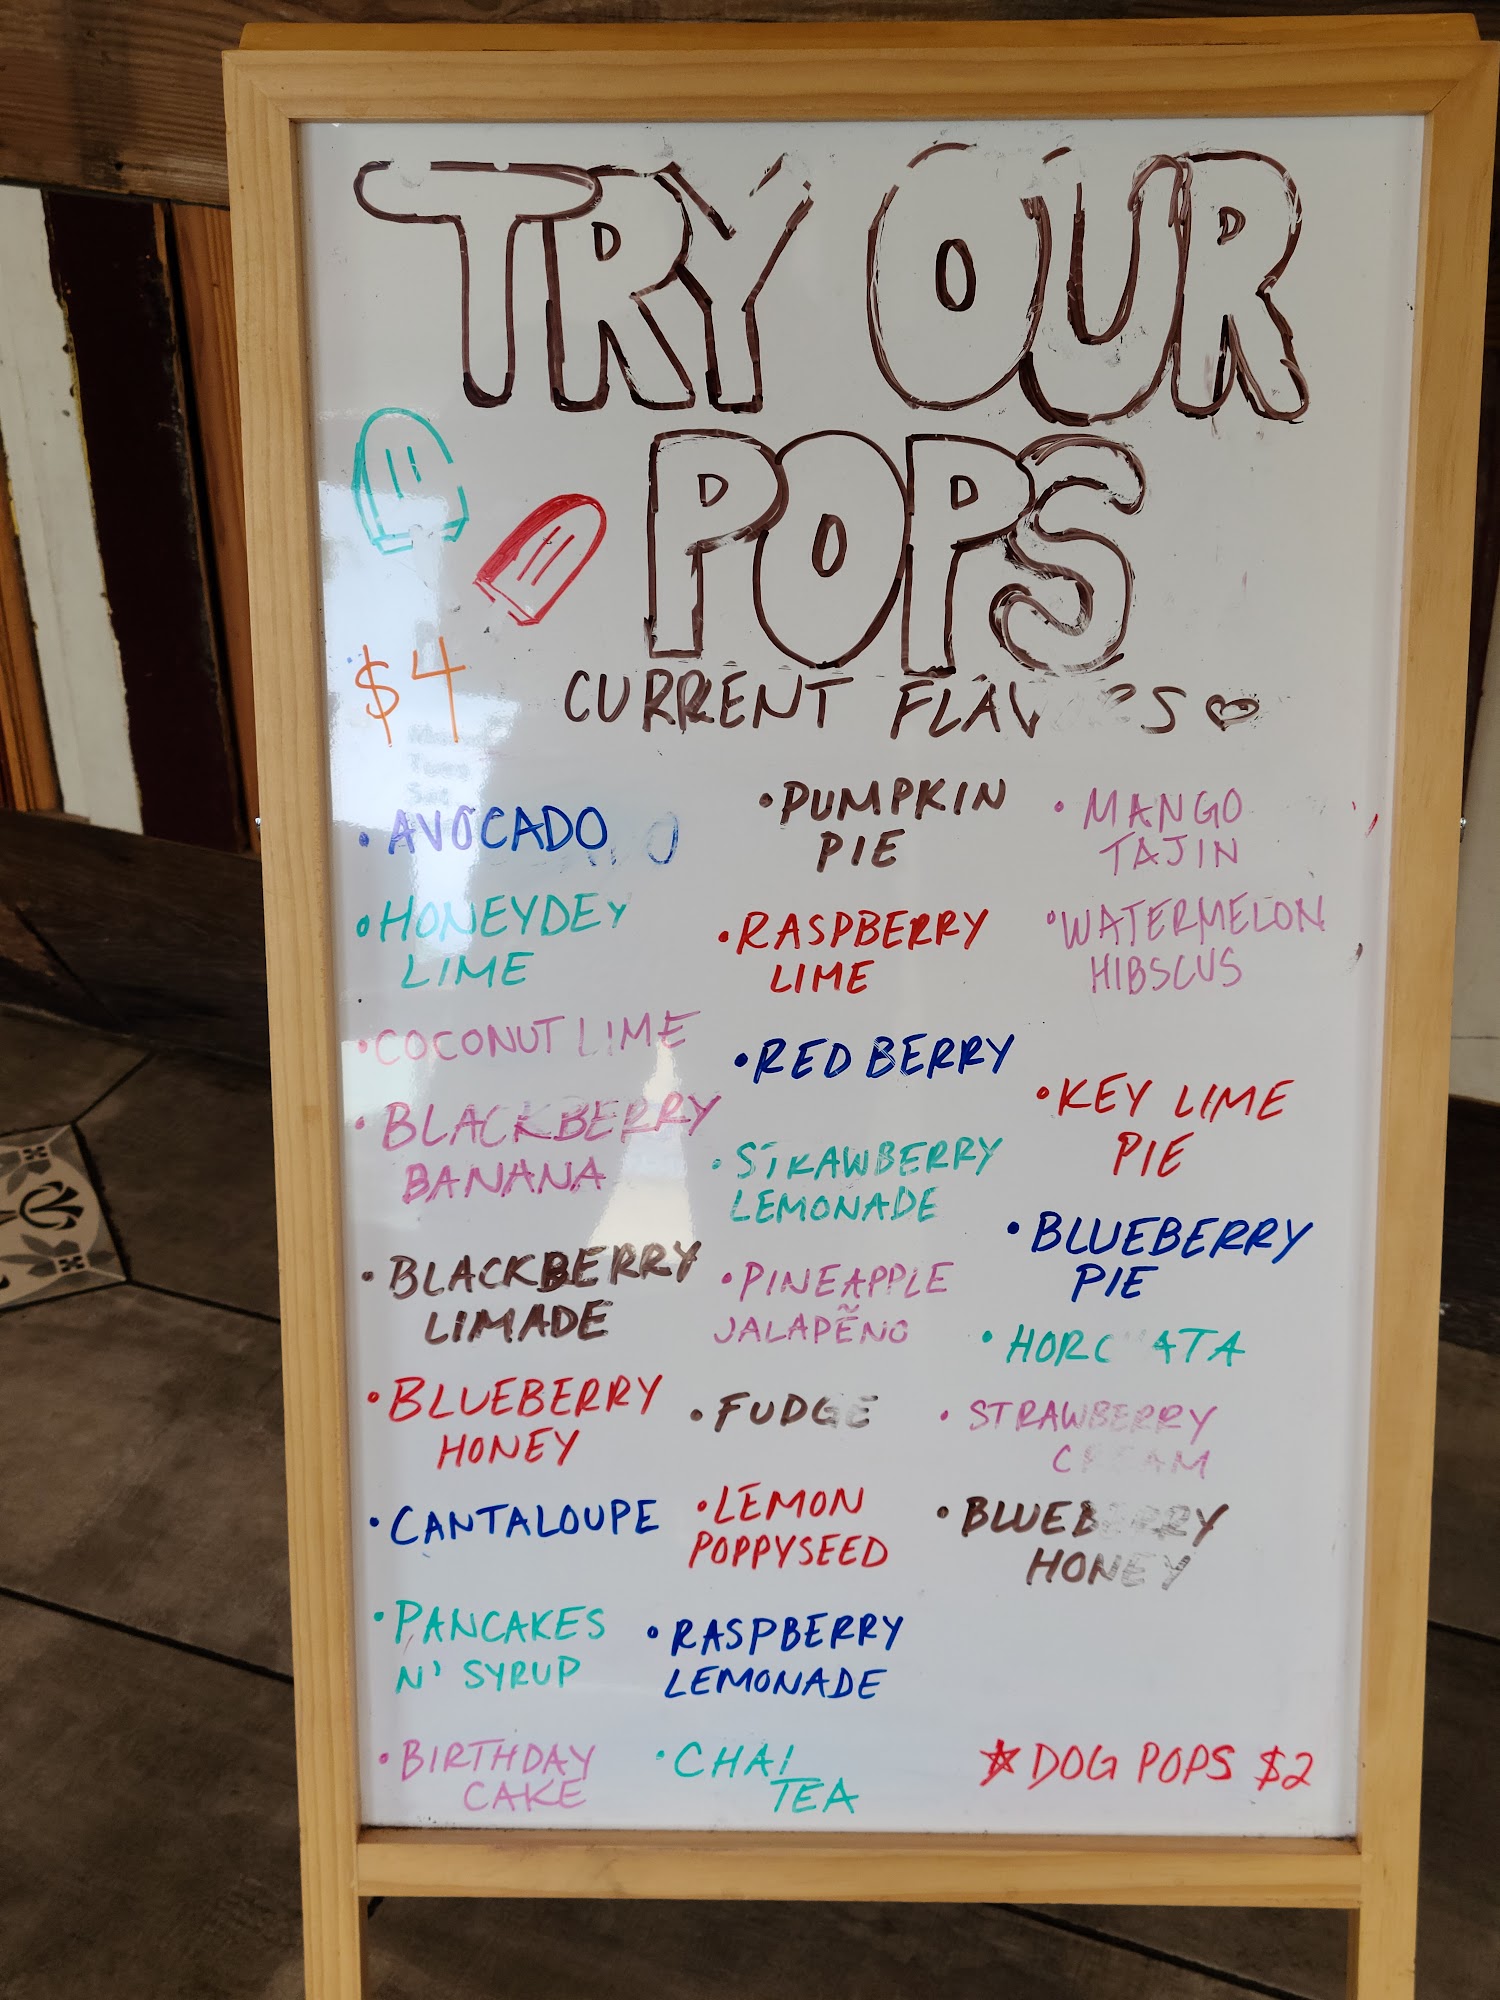 TRY OUR
POPS
$4
CURRENT FLAVORS
• AVOCADO
• HONEYDEY
LIME
• COCONUT LIME
• BLACKBERRY
BANANA
• BLACKBERRY
LIMADE
• BLUEBERRY
HONEY
• CANTALOUPE
• PANCAKES
N' SYRUP
• BIRTHDAY
CAKE
• PUMPKIN
PIE
• RASPBERRY
LIME
• RED BERRY
• STRAWBERRY
LEMONADE
• PINEAPPLE
JALAPEÑO
• FUDGE
• LEMON
POPPYSEED
• RASPBERRY
LEMONADE
• CHAI
TEA
• MANGO
TAJIN
• WATERMELON
HIBSCUS
• KEY LIME
PIE
• BLUEBERRY
PIE
• HORCHATA
• STRAWBERRY
CREAM
• BLUEBERRY
HONEY
☆ DOG POPS $2